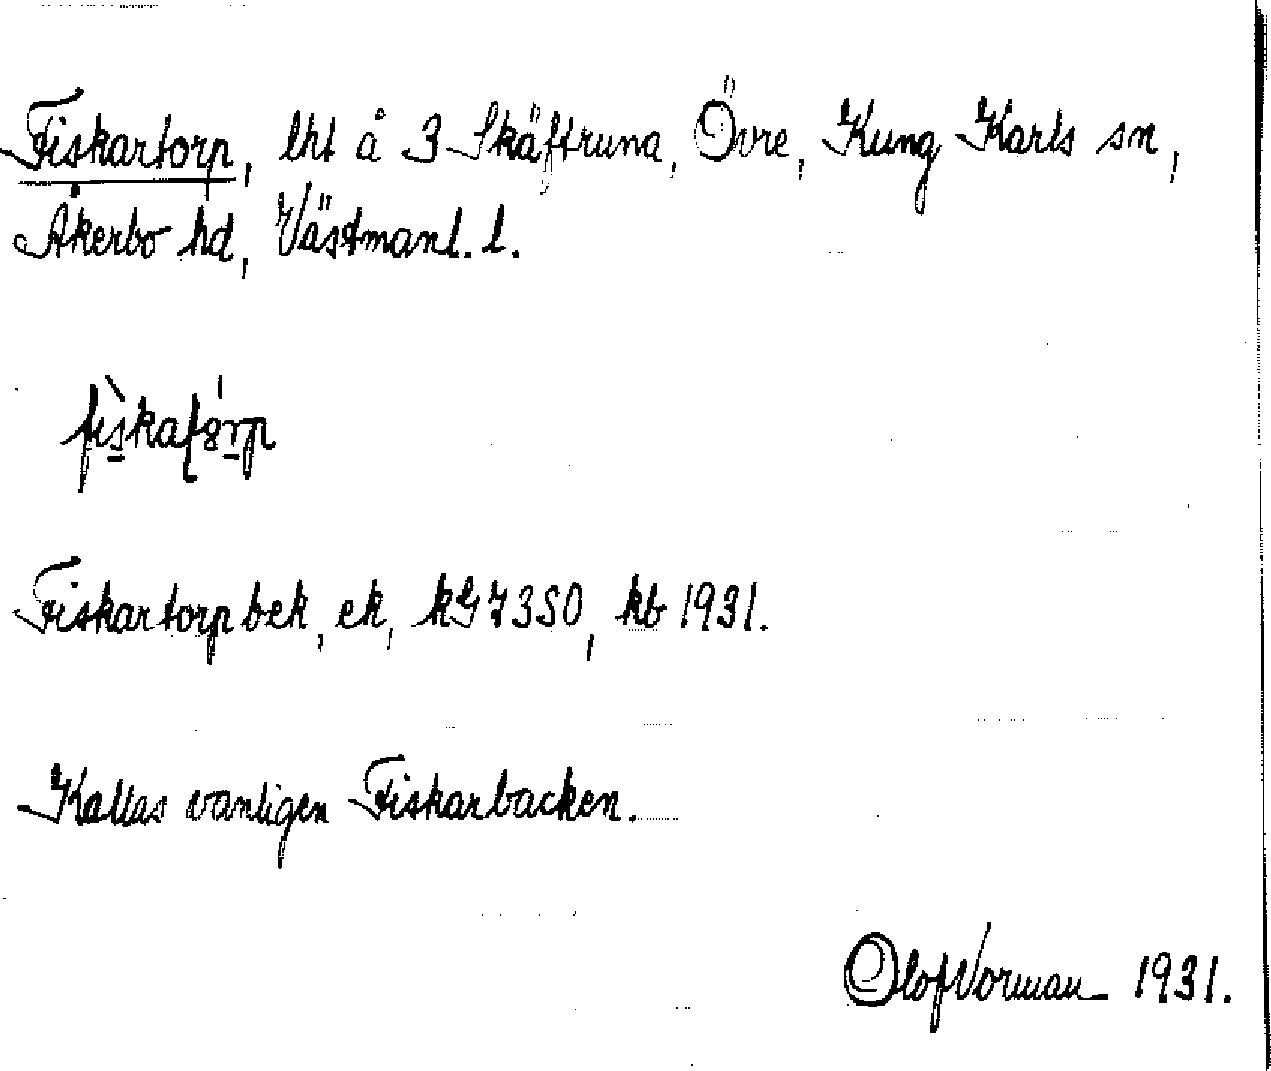 Fiskartorp, lht å 3 Skäftruna, Övre, Kung Karls sn,
Åkerbo hd, Västmanl. l.
Fiskartorp bek, ek, kG 7350, kb 1931.
Kallas vanligen Fiskarbacken.
Olof Vorman 1931.